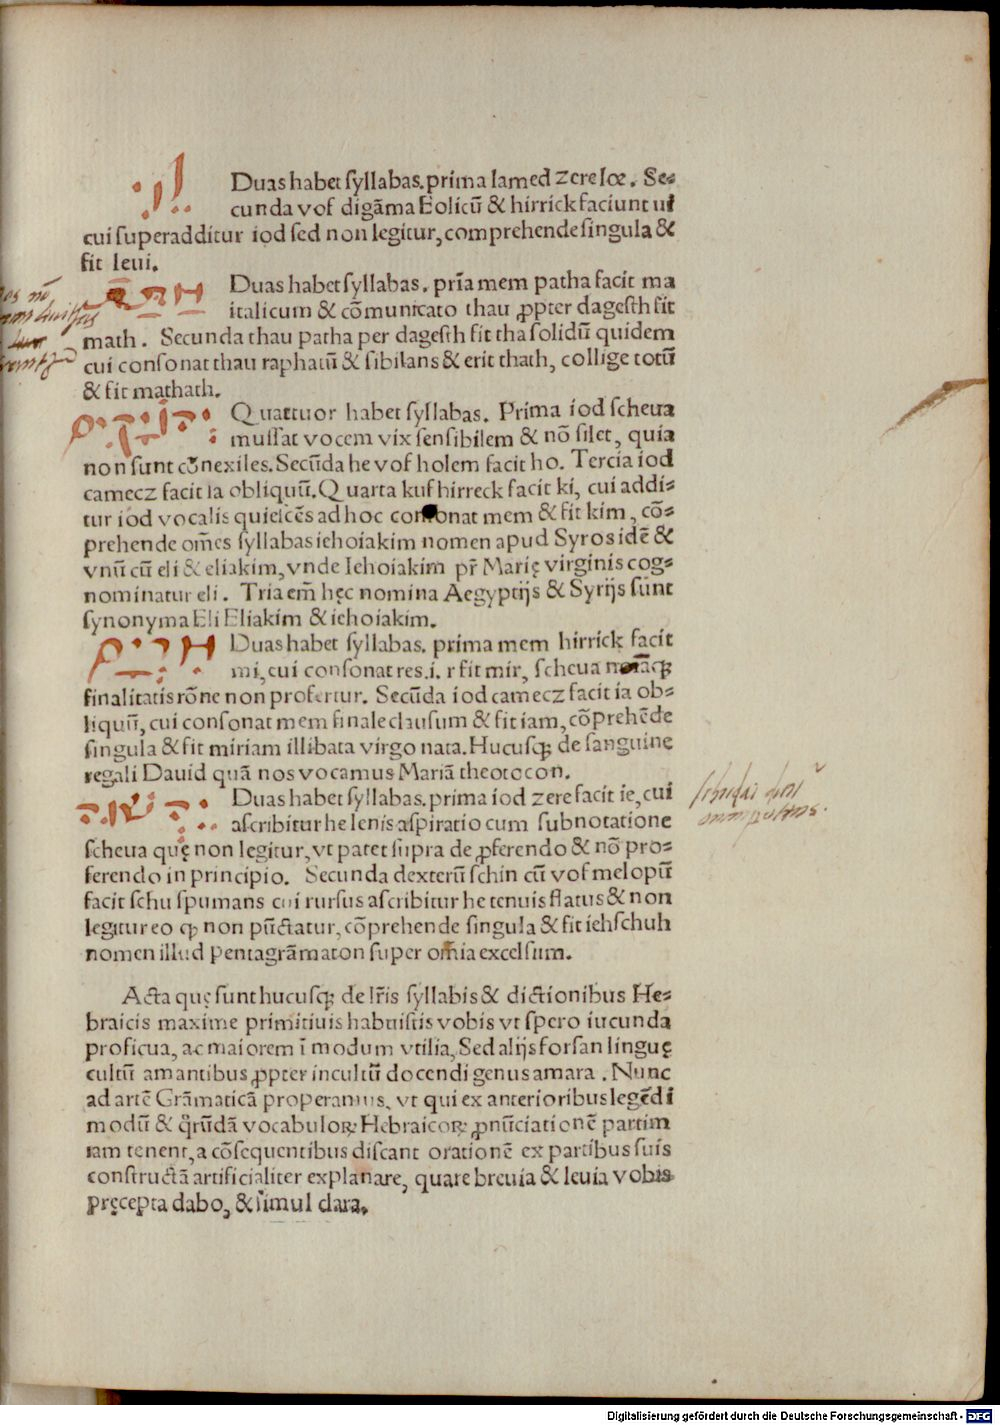 Duas habet syllabas. prima lamed zere loe. Se-
cunda vof digãma Eolicũ & hirrick faciunt ui
cui superadditur iod sed non legitur, comprehende singula &
fit leui.
Duas habet syllabas. pr̃ia mem patha facit ma
italicum & cõmunicato thau ꝓpter dagesth fit
math. Secunda thau patha per dagesth fit tha solidũ quidem
cui consonat thau raphatũ & sibilans & erit thath, collige totũ
& fit mathath.
יהויקים
Quattuor habet syllabas. Prima iod scheua
mussat vocem vix sensibilem & nõ silet, quia
non sunt cõnexiles. Secũda he vof holem facit ho. Tercia iod
camecz facit ia obliquũ. Quarta kuf hirreck facit ki, cui addi-
tur iod vocalis quiescẽs ad hoc consonat mem & fit kim, cõ-
prehende om̃es syllabas iehoiakim nomen apud Syros idẽ &
vnũ cũ eli & eliakim, vnde Iehoiakim pr̃ Marię virginis cog-
nominatur eli. Tria em̃ hęc nomina Aegyptijs & Syrijs sunt
synonyma Eli Eliakim & iehoiakim.
מרים
Duas habet syllabas. prima mem hirrick facit
mi, cui consonat res .i. r fit mir, scheua notãꝙ
finalitatis rõne non profertur. Secũda iod camecz facit ia ob-
liquũ, cui consonat mem finale clausum & fit iam, cõprehẽde
singula & fit miriam illibata virgo nata. Hucusꝙ de sanguine
regali Dauid quã nos vocamus Mariã theotocon.
Duas habet syllabas. prima iod zere facit ie, cui
ascribitur he lenis aspiratio cum subnotatione
scheua quę non legitur, vt patet supra de ꝓferendo & nõ pro-
ferendo in principio. Secunda dexterũ schin cũ vof melopũ
facit schu spumans cui rursus ascribitur he tenuis flatus & non
legitur eo ꝙ non pũctatur, cõprehende singula & fit iehschuh
nomen illud pentagrãmaton super om̃ia excelsum.
Acta quę sunt hucusꝙ de lr̃is syllabis & dictionibus He-
braicis maxime primitiuis habuistis vobis vt spero iucunda
proficua, ac maiorem ĩ modum vtilia, Sed alijs forsan linguę
cultũ amantibus ꝓpter incultũ docendi genus amara. Nunc
ad artẽ Grãmaticã properamus, vt qui ex anterioribus legẽdi
modũ & q̃rũdã vocabuloꝝ Hebraicoꝝ ꝓnũciationẽ partim
iam tenent, a cõsequentibus discant orationẽ ex partibus suis
constructã artificialiter explanare, quare breuia & leuia vobis
pręcepta dabo, & simul clara.
Digitalisierung gefördert durch die Deutsche Forschungsgemeinschaft - DFG